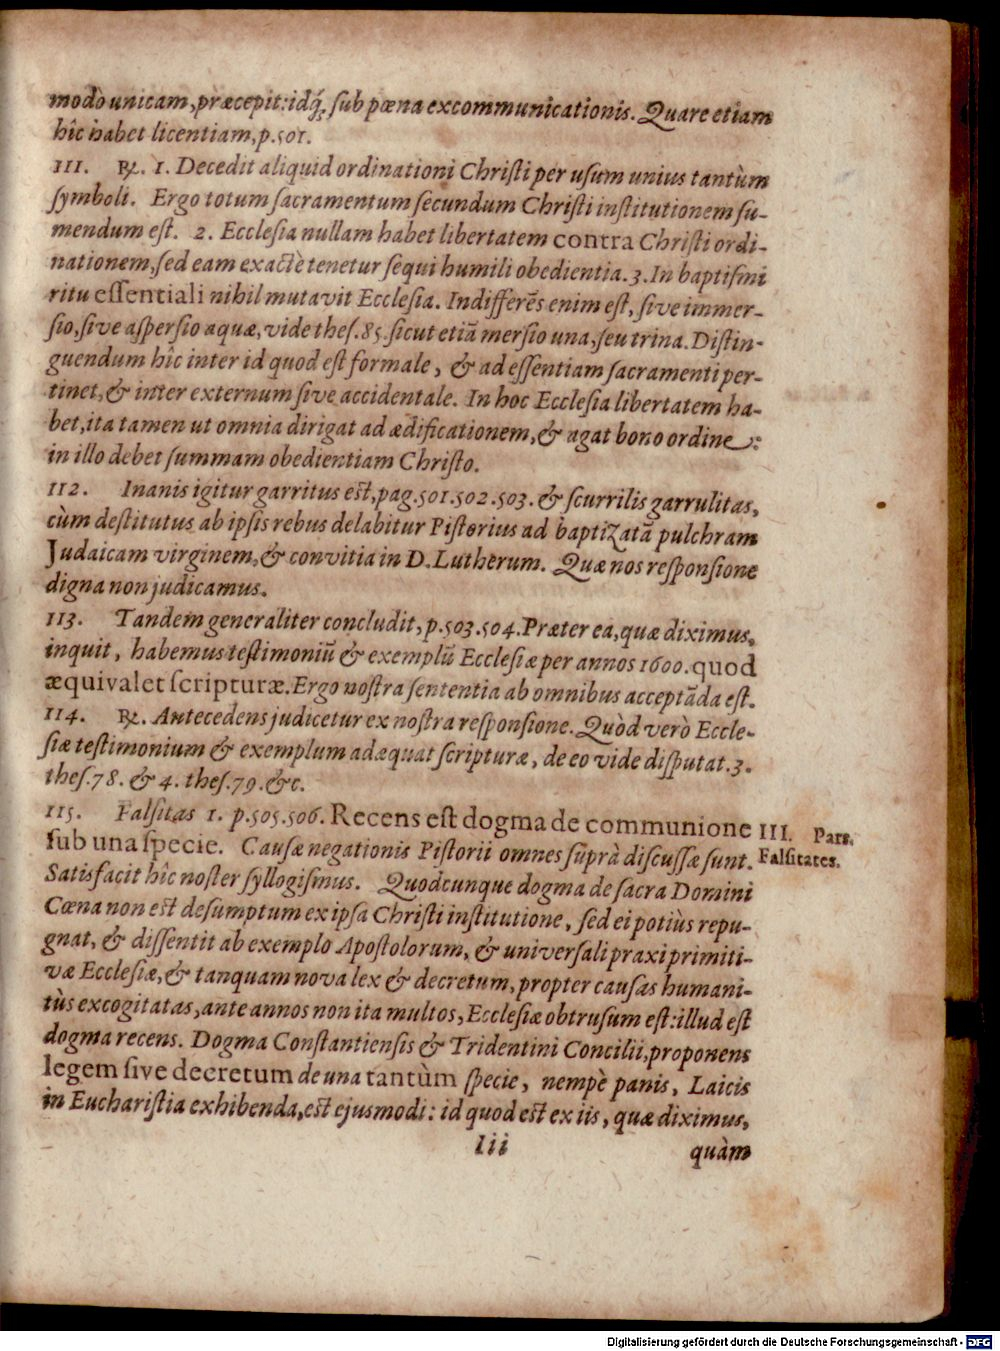 modò unicam, præcepit: idq́; sub pœna excommunicationis. Quare etiam
hîc habet licentiam, p.501.
111. ℞. 1. Decedit aliquid ordinationi Christi per usum unius tantùm
symboli. Ergo totum sacramentum secundum Christi institutionem su-
mendum est. 2. Ecclesia nullam habet libertatem contra Christi ordi-
nationem, sed eam exactè tenetur sequi humili obedientia. 3. In baptismi
ritu essentiali nihil mutavit Ecclesia. Indifferẽs enim est, sive immer-
sio, sive aspersio aquæ, vide thes. 85. sicut etiã mersio una, seu trina. Distin-
guendum hîc inter id quod est formale, & ad essentiam sacramenti per-
tinet, & inter externum sive accidentale. In hoc Ecclesia libertatem ha-
bet, ita tamen ut omnia dirigat ad ædificationem, & agat bono ordine:
in illo debet summam obedientiam Christo.
112. Inanis igitur garritus est, pag. 501. 502. 503. & scurrilis garrulitas,
cùm destitutus ab ipsis rebus delabitur Pistorius ad baptizatã pulchram
Judaicam virginem, & convitia in D. Lutherum. Quæ nos responsione
digna non judicamus.
113. Tandem generaliter concludit, p. 503. 504. Præter ea, quæ diximus,
inquit, habemus testimoniũ & exemplũ Ecclesiæ per annos 1600. quod
æquivalet scripturæ. Ergo nostra sententia ab omnibus acceptãda est.
114. ℞. Antecedens judicetur ex nostra responsione. Quòd verò Eccle-
siæ testimonium & exemplum adæquat scripturæ, de eo vide disputat. 3.
thes. 78. & 4. thes. 79. &c.
115. Falsitas 1. p. 505. 506. Recens est dogma de communione
sub una specie. Causæ negationis Pistorii omnes suprà discussæ sunt.
Satisfacit hîc noster syllogismus. Quodcunque dogma de sacra Domini
Cœna non est desumptum ex ipsa Christi institutione, sed ei potiùs repu-
gnat, & dissentit ab exemplo Apostolorum, & universali praxi primiti-
væ Ecclesiæ, & tanquam nova lex & decretum, propter causas humani-
tùs excogitatas, ante annos non ita multos, Ecclesiæ obtrusum est: illud est
dogma recens. Dogma Constantiensis & Tridentini Concilii, proponens
legem sive decretum de una tantùm specie, nempè panis, Laicis
in Eucharistia exhibenda, est ejusmodi: id quod est ex iis, quæ diximus,
Iii
quàm
III. Pars.
Falsitates.
Digitalisierung gefördert durch die Deutsche Forschungsgemeinschaft - DFG